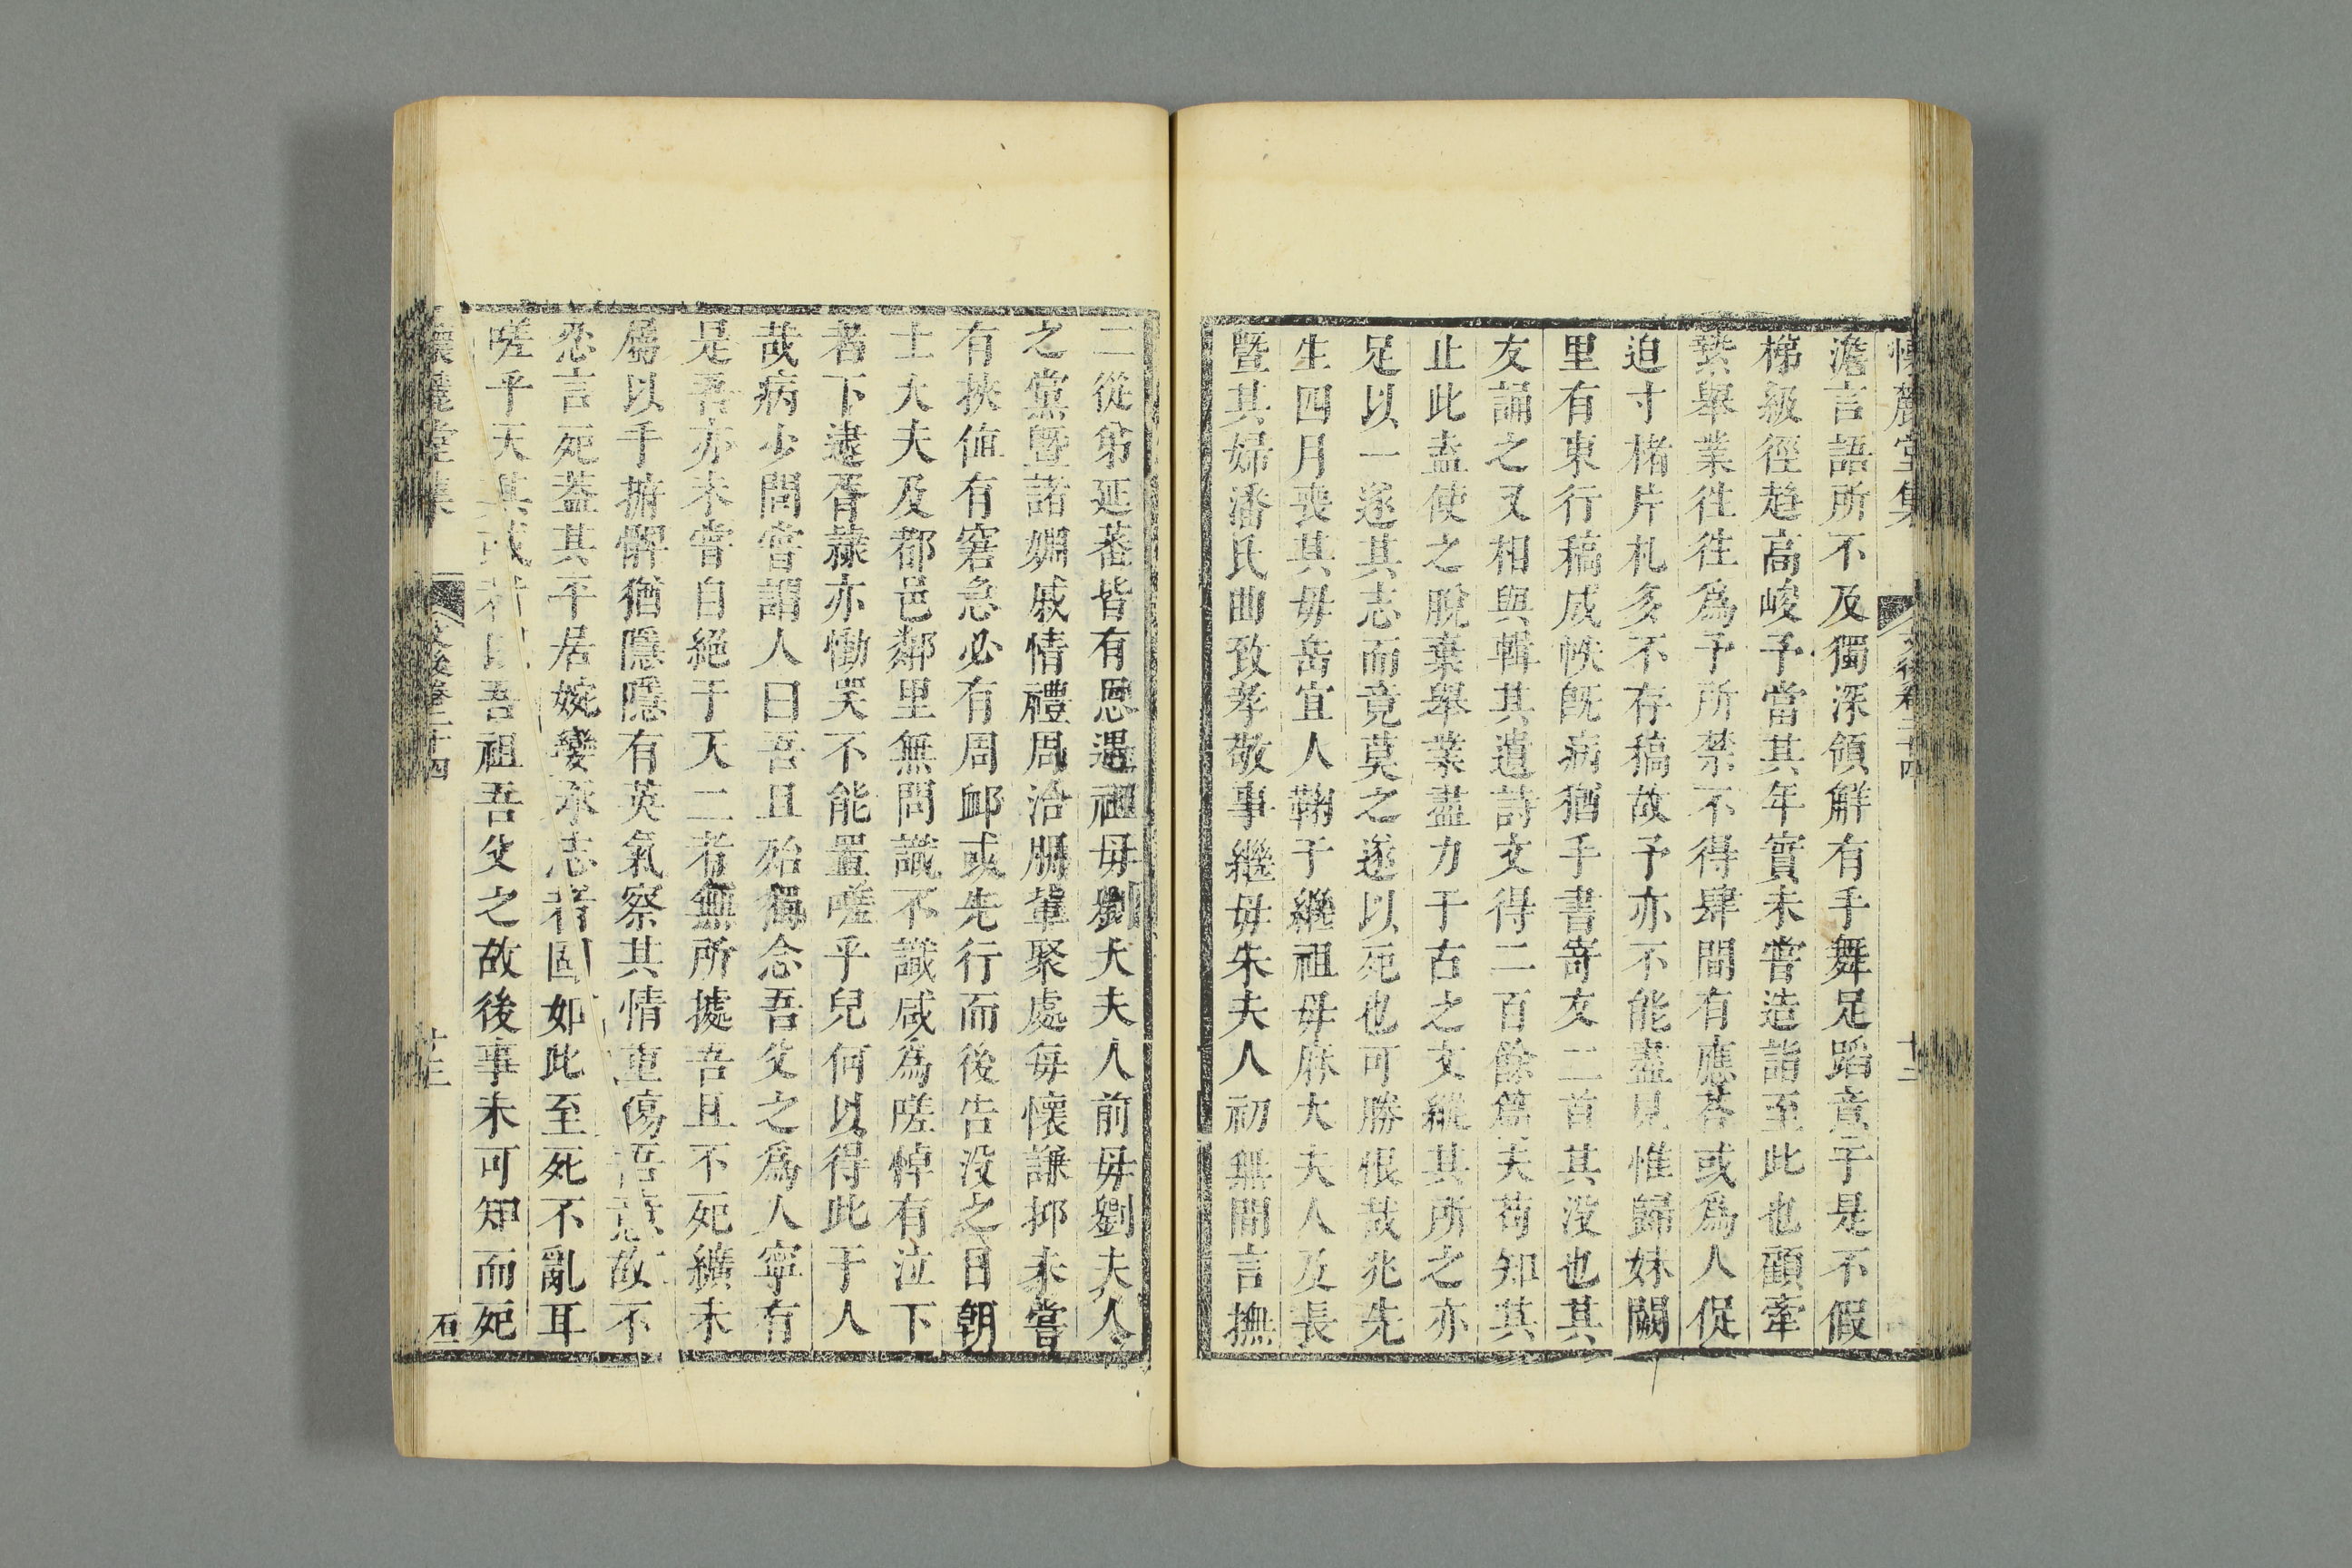 懷麓堂集 文後卷二十四 十二
澹言語所不及獨深領解有手舞足蹈意于是不假
梯級徑趋高峻予當其年實未嘗造詣至此也顧牽
縈舉業往往為予所禁不得肆間有應荅或為人促
迫寸楮片札多不存稿故予亦不能盡見惟歸妹闕
里有東行稿成帙既病猶手書寄友二首其没也其
友誦之又相與輯其遺詩文得二百餘篇夫苟知其
止此盍使之脫棄舉業盡力于古之文縱其所之亦
足以一遂其志而竟莫之遂以死也可勝恨哉兆先
生四月喪其毋岳宜人鞠于繼祖毋麻大夫人及長
暨其婦潘氏曲致孝敬事繼毋朱夫人初無間言撫
二從弟延蕃皆有恩遇祖毋劉大夫人前毋劉夫人
之黨暨諸姻戚情禮周洽朋輩聚處每懷謙抑未嘗
有挾値有窘急必有周卹或先行而後告没之日朝
士大夫及都邑鄰里無問識不識咸為嗟悼有泣下
者下逮胥隸亦慟哭不能置嗟乎兒何以得此于人
哉病少間嘗謂人曰吾且殆獨念吾父之為人寧有
是吾亦未嘗自絕于天二者無所據吾且不死纊未
屬以手擁髀猶隱隱有英氣察其情重傷吾意故不
忍言死蓋其平居婉孌承志者固如此至死不亂耳
嗟乎天其或者以吾祖吾父之故後事未可知而死
懷麓堂集 文後卷二十四 十三 石